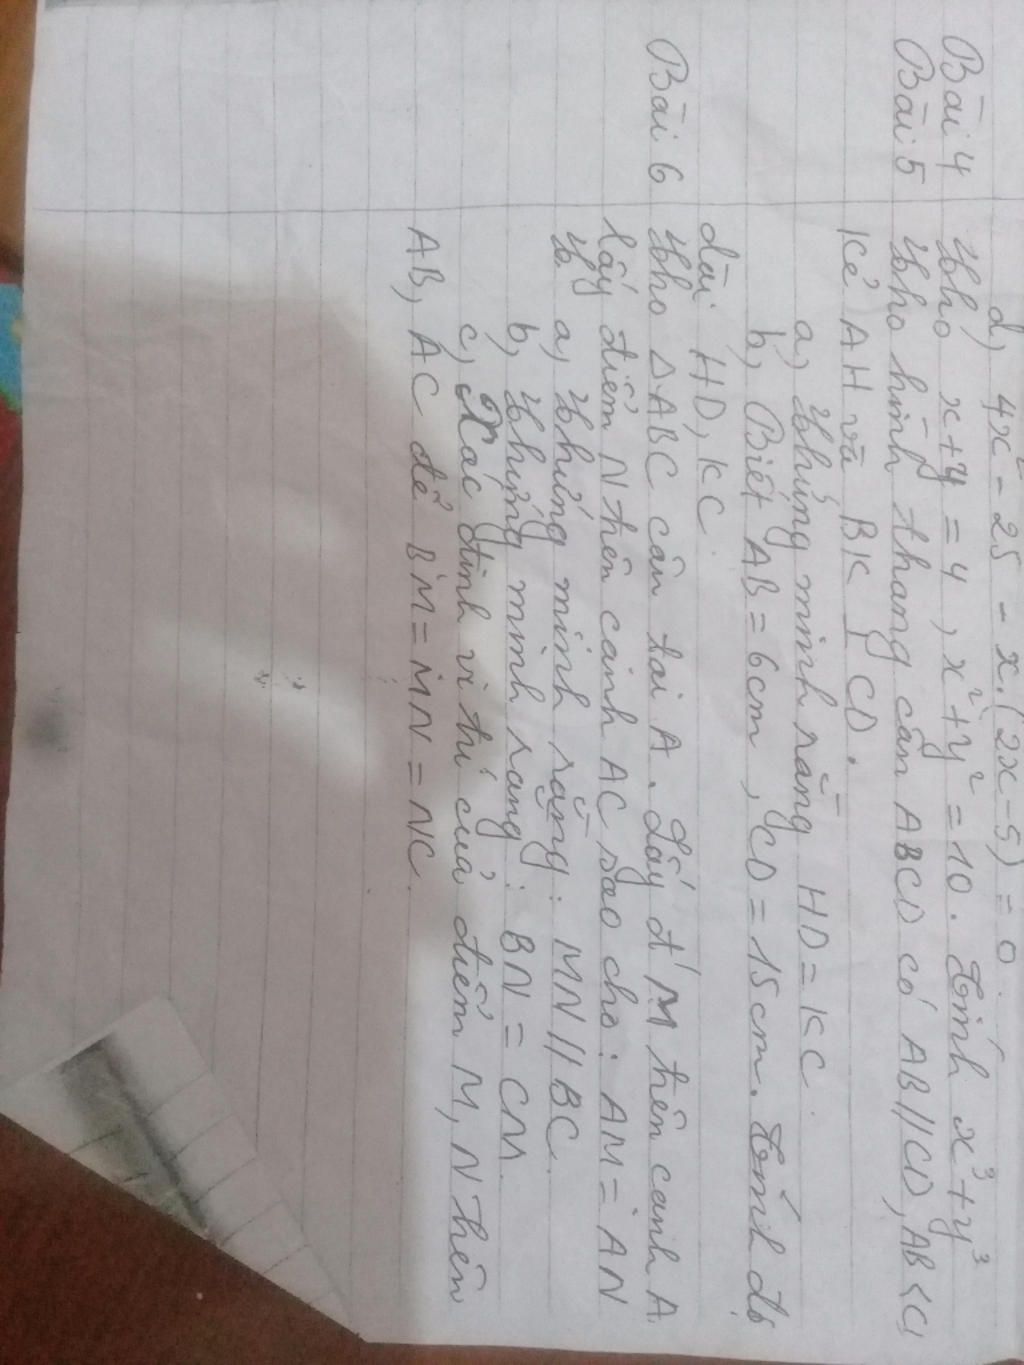 d, 4x² - 25 - x.(2x-5) = 0.
Bài 4 Cho x+y = 4, x²+y² = 10. Tính x³+y³
Bài 5 Cho hình thang cân ABCD có AB//CD, AB<C
Kẻ AH và BK ⊥ CD.
a, Chứng minh rằng HD = KC.
b, Biết AB = 6cm, CD = 15cm. Tính độ
dài HD, KC.
Bài 6 Cho ΔABC cân tại A. Lấy đ' M trên cạnh A
lấy điểm N trên cạnh AC sao cho: AM = AN
a, Chứng minh rằng: MN//BC.
b, Chứng minh rằng: BN = CM.
c, Xác định vị trí của điểm M, N trên
AB, AC để BM = MN = NC.